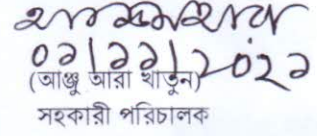 ০১|১১|২০২১
(আঞ্জু আরা খাতুন)
সহকারী পরিচালক